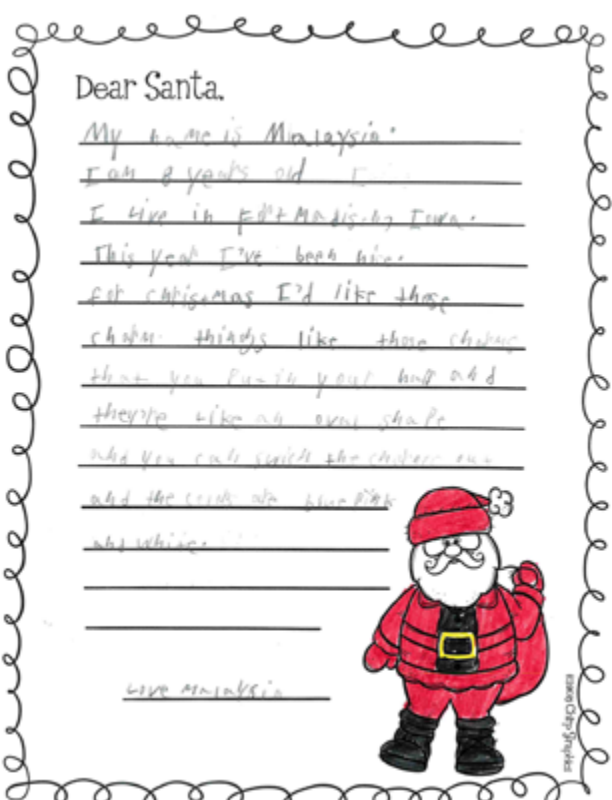 Dear Santa,
My name is Malaysia.
I am 8 years old
I Live in Fort Madison, Iowa.
This year I've been nice.
for christmas I'd like these
charm things like those charms
that you in your and
they're like an oval shape
and you can the
and the are blue pink
and white.
Love Malaysia